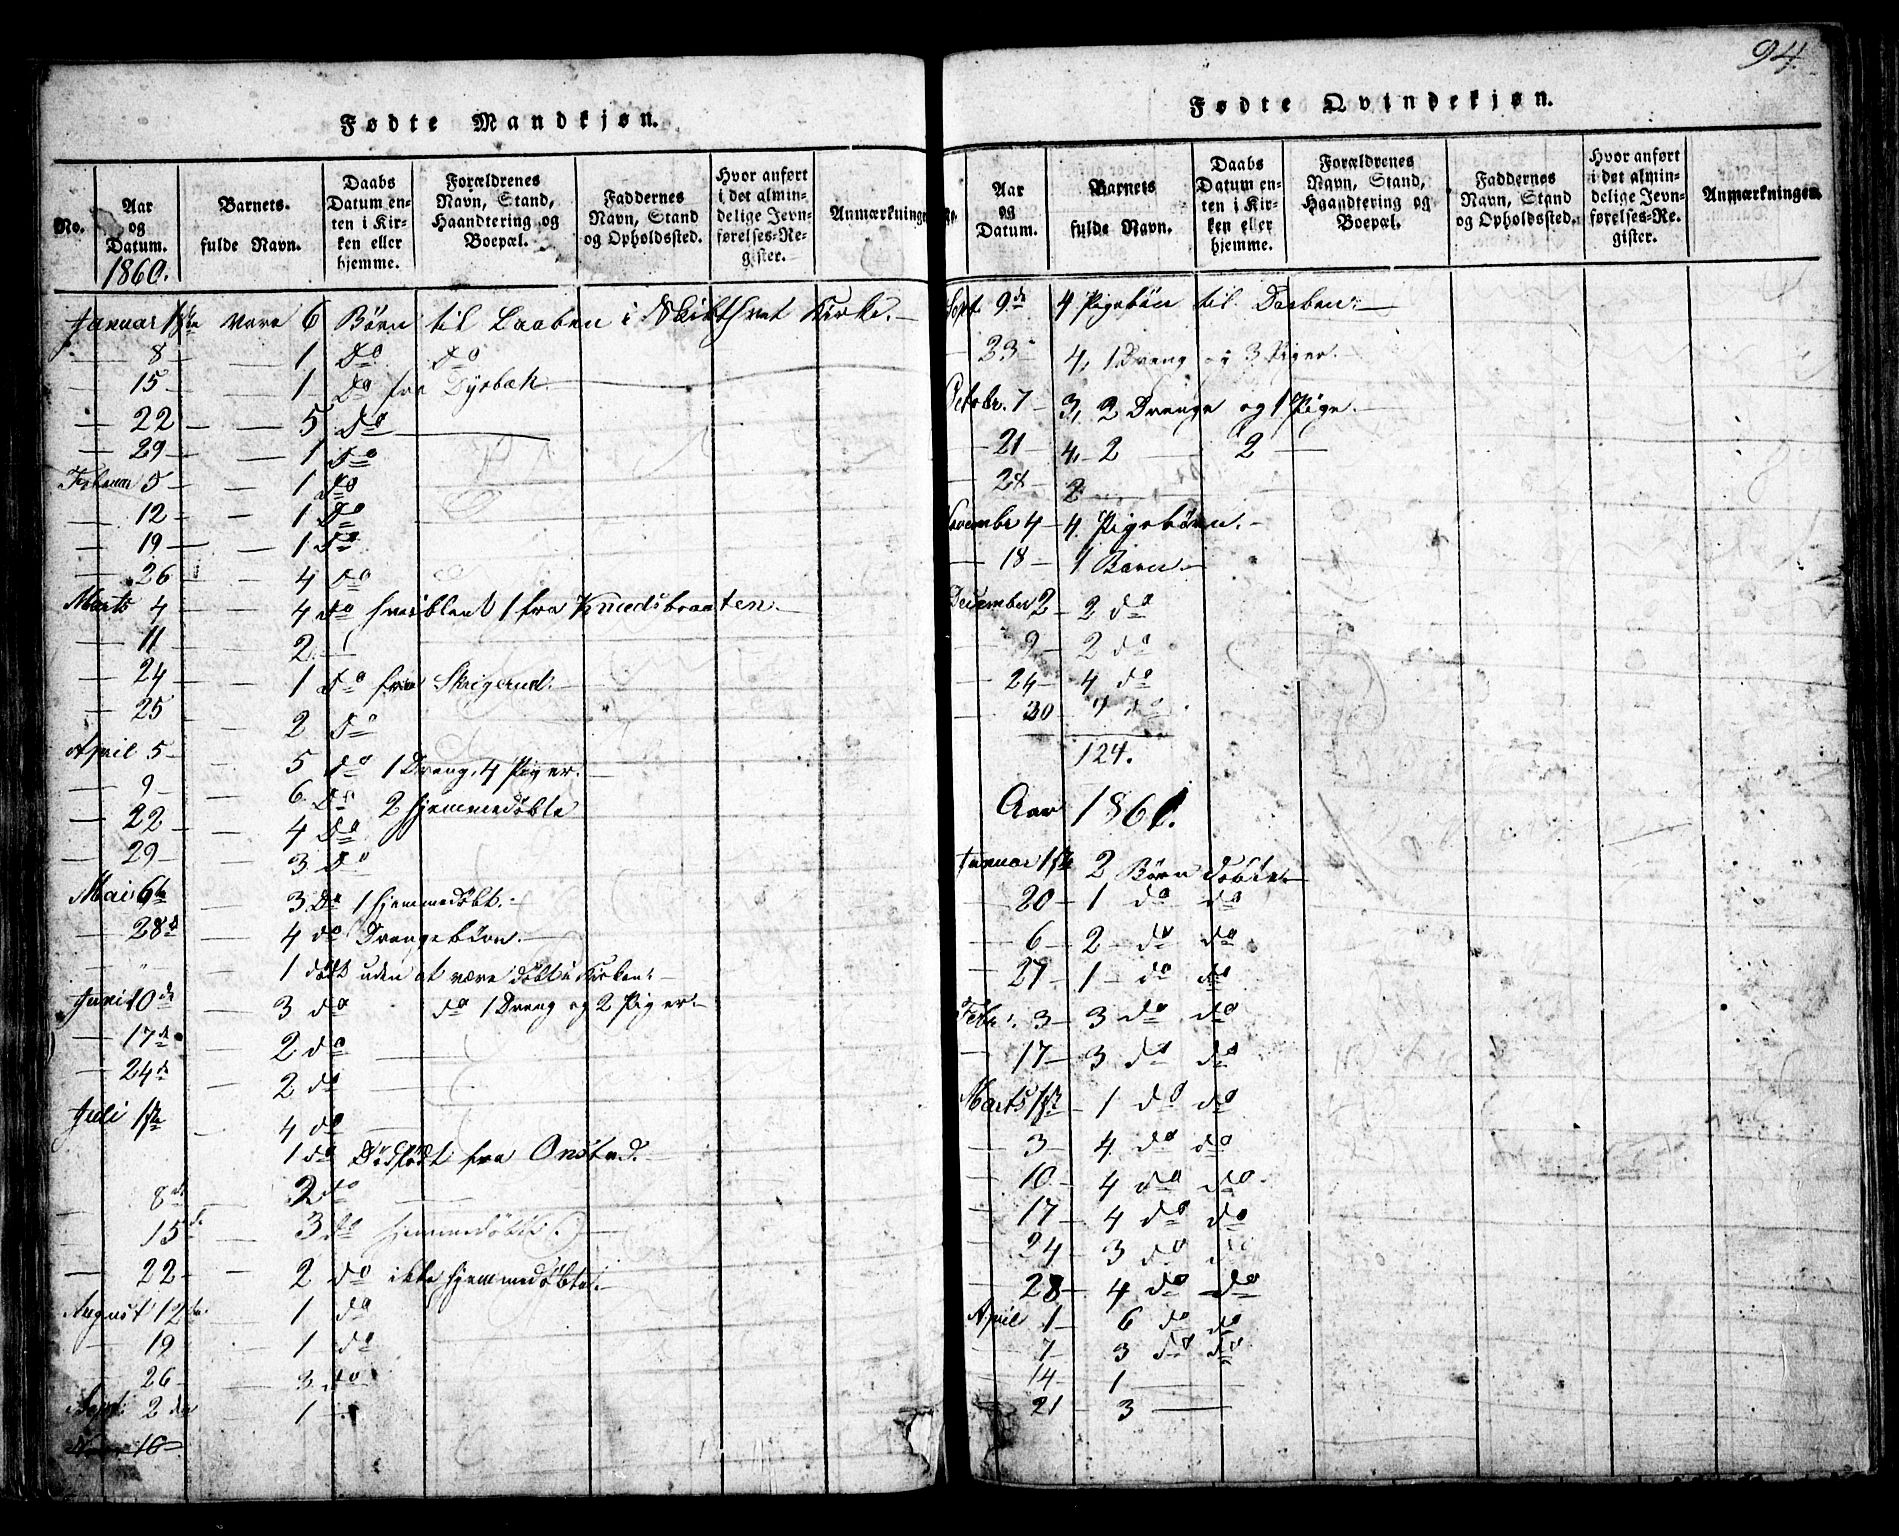 94.
Fødte Mandkjøn.
No.
Aar og Datum.
1860.
Barnets fulde Navn.
Daabs Datum enten i Kirken eller hjemme.
Forældrenes Navn, Stand, Haandtering og Boepæl.
Faddernes Navn, Stand og Opholdssted.
Hvor anført i det almindelige Jevnførelses-Register.
Anmærkninger
Januar 1ste vare 6 Børn til Daaben i Skibthvet Kirke.
— 8 — 1 Do Do
— 15 — 1 Do fra Dysbæk.
— 22 — 5 Do
— 29 — 1 Do
Februar 5 — 1 Do
— 12 — 1 Do
— 19 — 1 Do
— 26 — 4 Do
Marts 4 4 Do hvoriblent 1 fra Knedsbraaten.
— 11 2
— 24 — 1 Do fra Skrigerud.
— 25 2 Do
April 5 — 5 Do 1 Dreng, 4 Piger.
— 9 — 6 Do 2 hjemmedøbte
— 22 — 4 Do
— 29 — 3 Do
Mai 6te 3 Do 1 hjemmedøbt.
— 28de — 4 do Drengebørn.
— " — 1 født uden at være døbt i Kirken.
Juni 10de 3 do do 1 Dreng og 2 Piger
— 17de — 2 do
— 24de — 2 do
Juli 1ste 4 do
1 do Dødfødt fra Onstad.
8de 2 do
— 15de 3 do hjemmedøbt.
— 22 — 2 do ikke hjemmedøbte.
August 12te 1 do
— 19 — 1 do
— 26 — 3 do
Sept. 2den 1
16
Fødte Qvindekjøn.
No.
Aar og Datum.
Barnets fulde Navn.
Daabs Datum enten i Kirken eller hjemme.
Forældrenes Navn, Stand, Haandtering og Boepæl.
Faddernes Navn, Stand og Opholdssted.
Hvor anført i det almindelige Jevnførelses-Register.
Anmærkninger.
Sept. 9de 4 Pigebørn til Daaben
— 23 4, 1 Dreng 3 Piger.
Octobr. 7 — 3, 2 Drenge og 1 Pige.
— 21 — 4, 2 — 2 —
— 28 — 2
Novembr 4 — 4 Pigebørn.
— 18 — 1 Barn.
December 2 — 2 do
— 9 — 2 do
— 24 — 4 do
— 30 do
124.
Aar 1861.
Januar 1ste 2 Børn døbte
— 20 — 1 do do
— 6 — 2 do do
— 27 — 1 do do
Febr. 3 — 3 do do
— 17 — 3 do do
Marts 1ste — 1 do do
— 3 — 4 do do
— 10 — 4 do do
— 17 — 4 do do
— 24 — 3 do do
— 28 — 4 do do
April 1 — 6 do do
— 7 — 3 do do
— 14 — 1
— 21 — 3